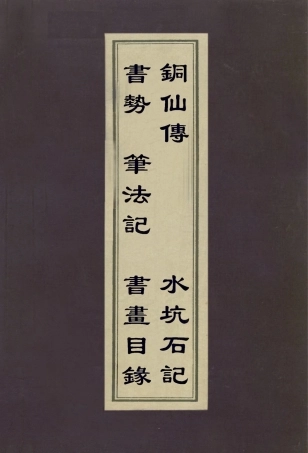 銅仙傳 水坑石記
書勢 筆法記 書畫目錄